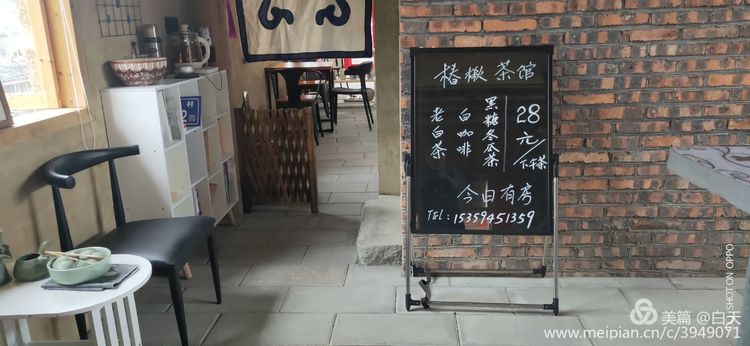 椿楸茶馆
黑糖冬瓜茶
白咖啡
老白茶
28元/下午茶
今日有房
TEL：15359451359
村
SHOT ON OPPO
美篇 @白天
www.meipian.cn/c/3949071